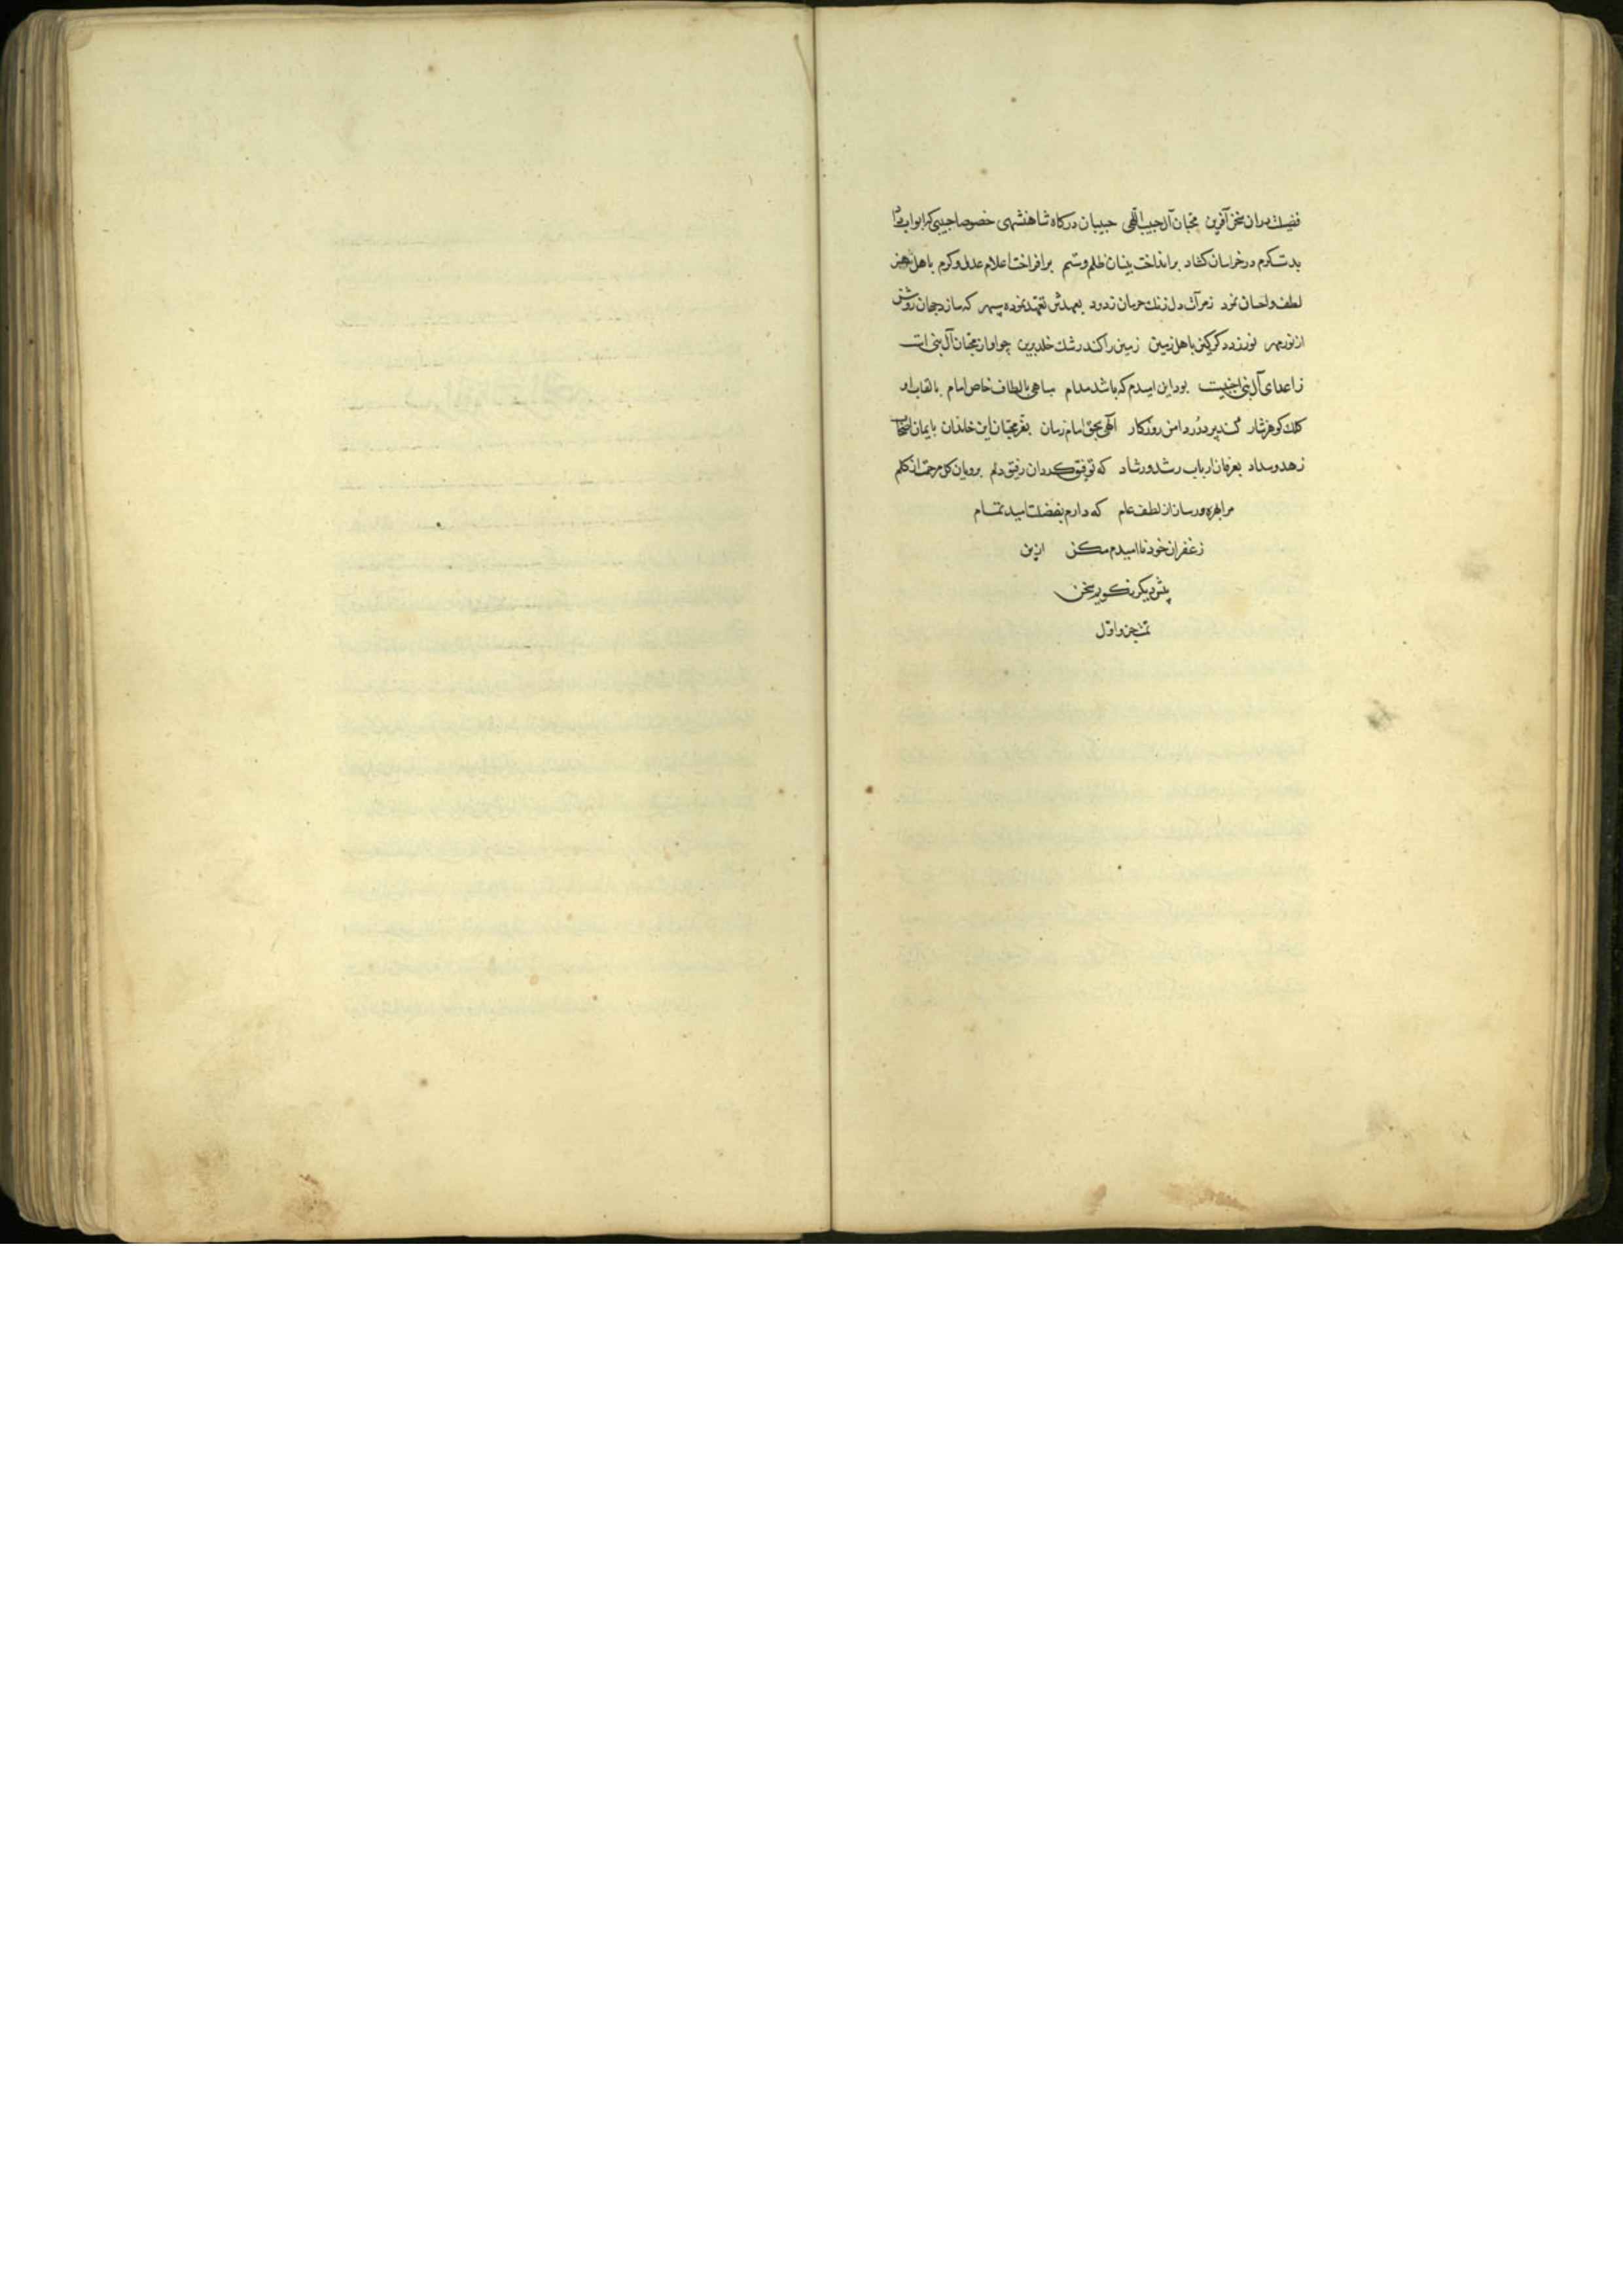 فضیلت‌وران سخن آفرین محبان آل حبیب اللهی حبیبان درکاه شاهنشهی خصوصا حبیبی که ابواب داد
بدست کرم در خراسان کشاد برانداخت بنیان ظلم و ستم برافراخت اعلام عدل و کرم باهل هنر
لطف و احسان نمود ز مرآت دل زنك حرمان زدود بعهدش تعهد نموده سپهر که سازد جهان روشن
از نور مهر نورزد دکر کین باهل زمین زمین را کند رشك خلد برین چو او از محبان آل نبی است
ز اعدای آل نبی اجنبیست بود این امیدم که باشد مدام مباهی بالطاف خاص امام بالقاب او
کلك کوهرنثار کند پر درر دامن روزکار الهی بحق امام زمان بعز محبان این خاندان بایمان اصحاب
زهد و سداد بعرفان ارباب رشد و رشاد که توفیق کردان رفیق دلم برویان کل مرحمت از کلم
مرا بهره‌ور ساز از لطف عام که دارم بفضلت امید تمام
ز غفران خود ناامیدم مکن ازین
پیش دیکر نکویم سخن
تمت جزو اول